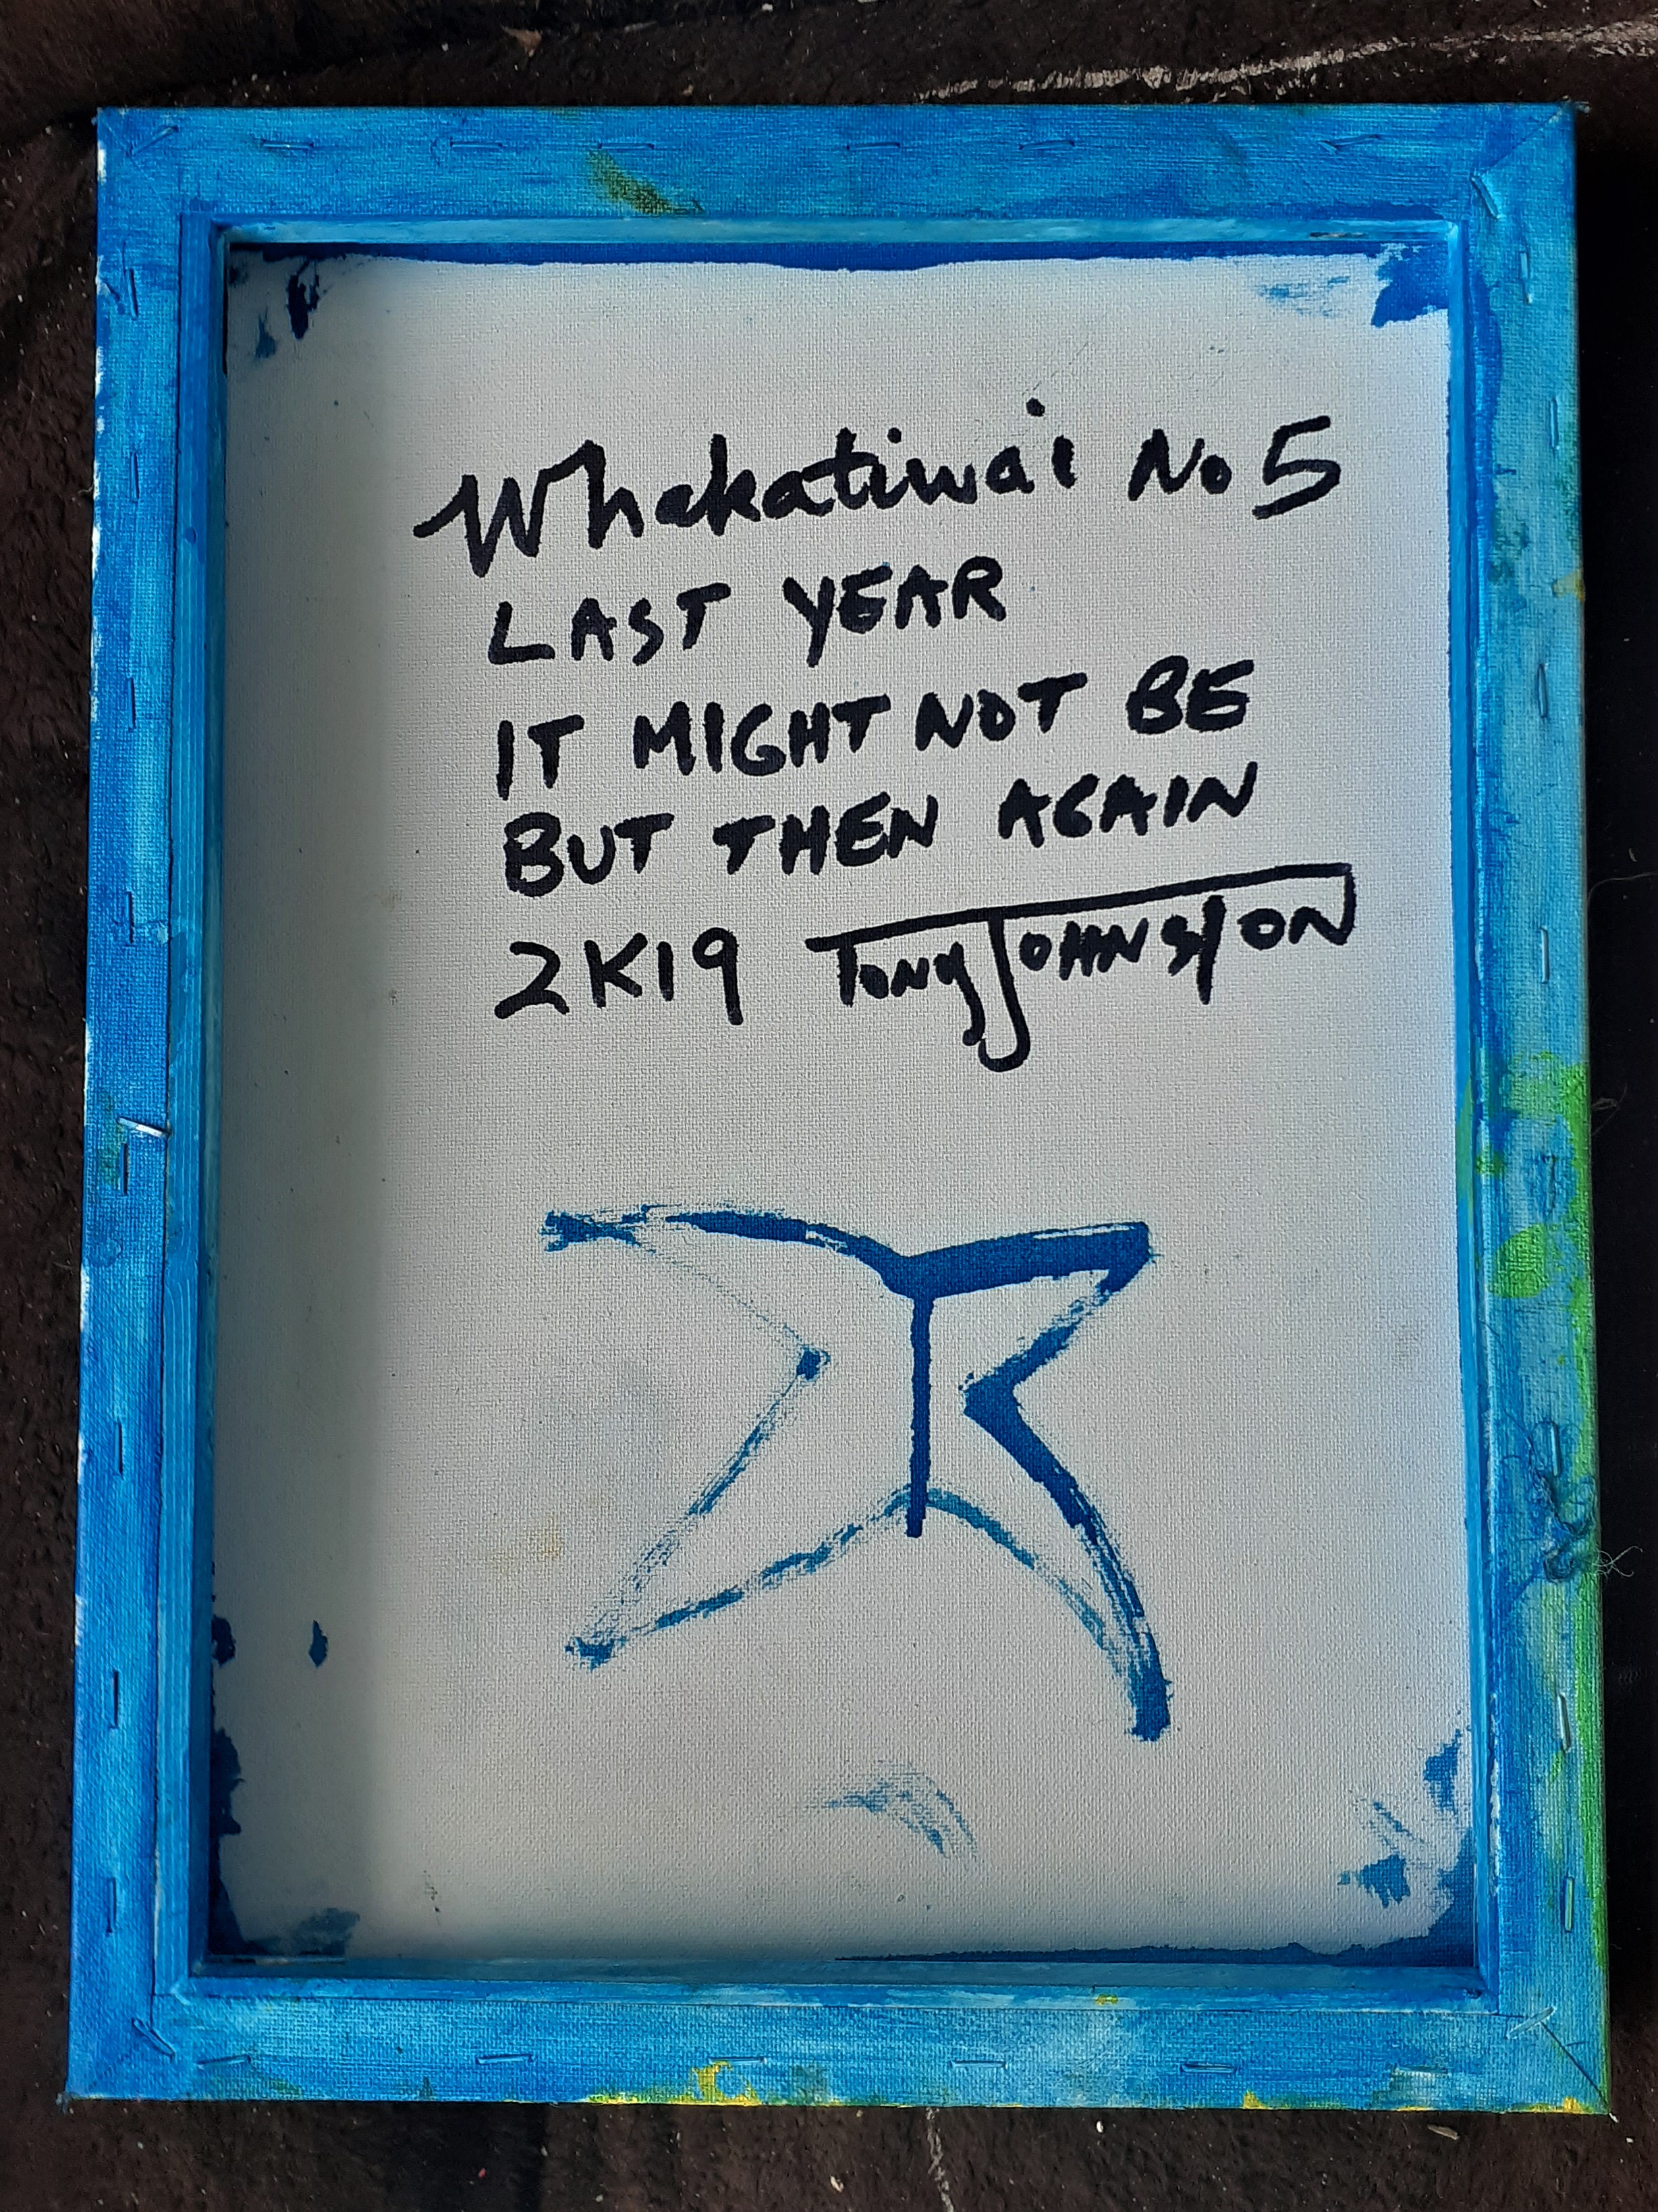 Whakatiwai No 5
LAST YEAR
IT MIGHT NOT BE
BUT THEN AGAIN
2K19 TONY JOHNSTON